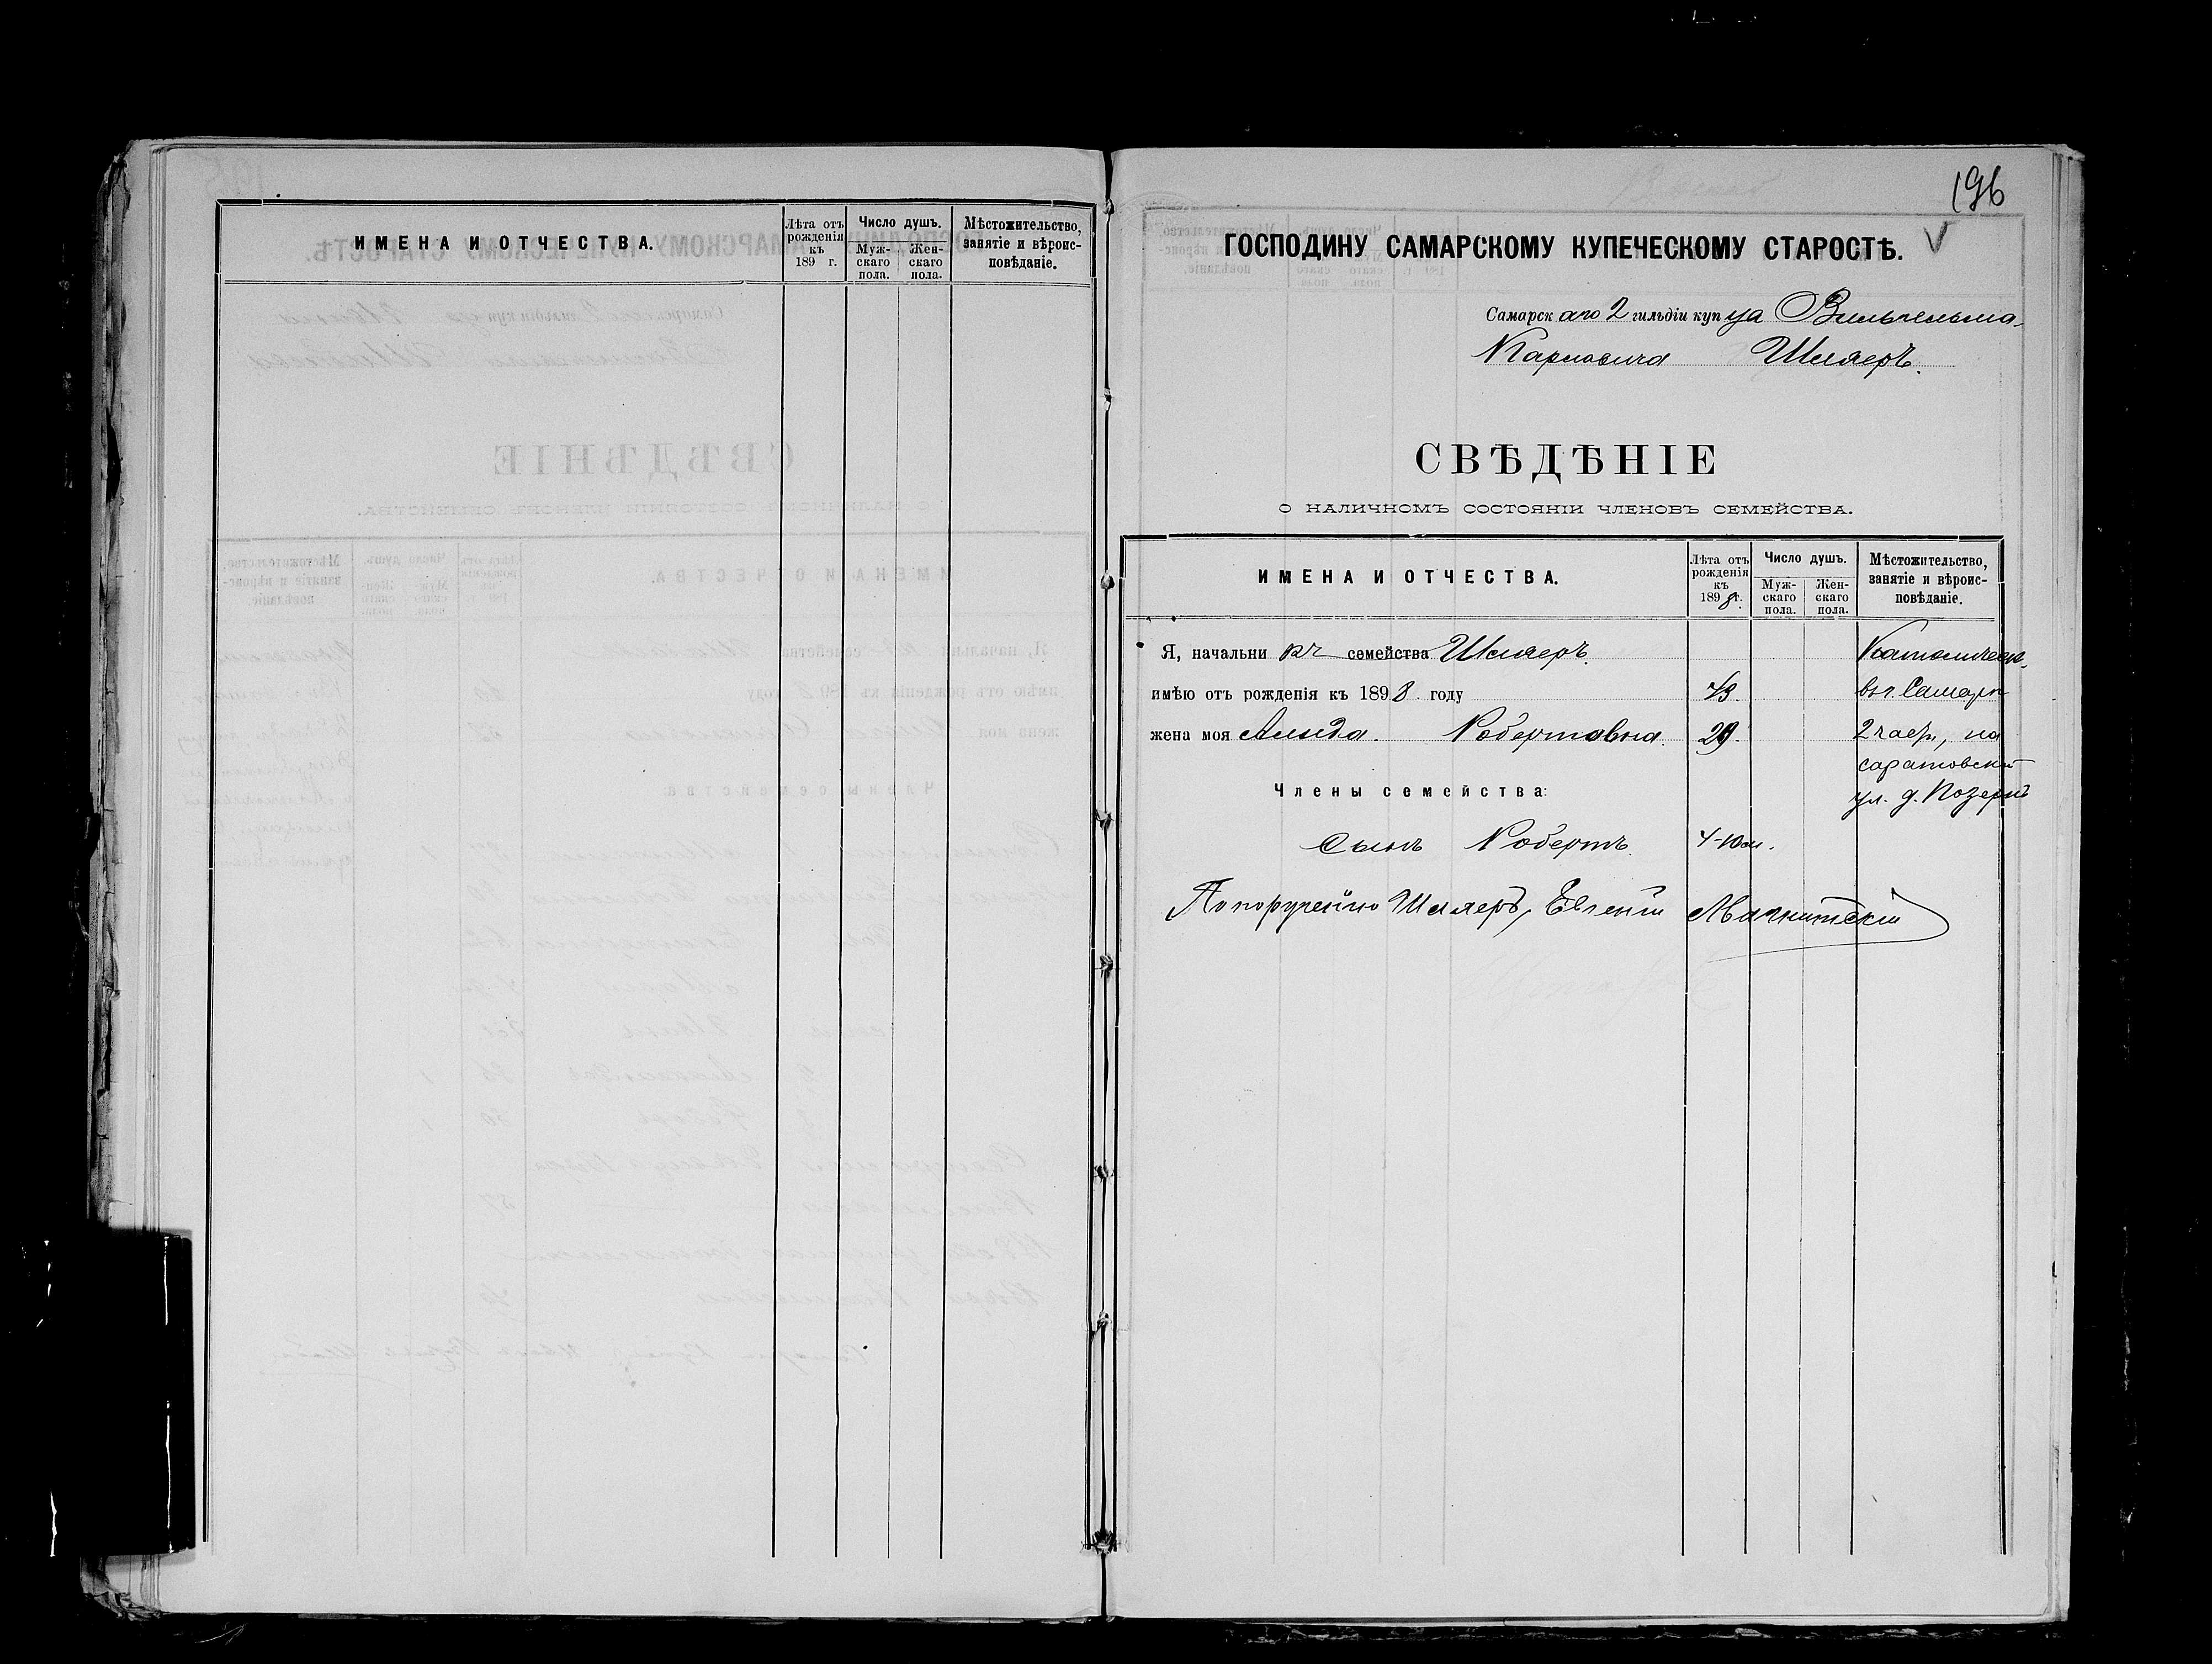 ИМЕНА И ОТЧЕСТВА.
Лѣта отъ рожденія къ 189 г.
Число душъ.
Муж-скаго пола.
Жен-скаго пола.
Мѣстожительство, занятіе и вѣроис-повѣданіе.
196
ГОСПОДИНУ САМАРСКОМУ КУПЕЧЕСКОМУ СТАРОСТѢ.
Самарскаго 2 гильдіи купца Вильгельма
Карловича Шмяеръ.
СВѢДѢНІЕ
О НАЛИЧНОМЪ СОСТОЯНІИ ЧЛЕНОВЪ СЕМЕЙСТВА.
ИМЕНА И ОТЧЕСТВА.
Лѣта отъ рожденія къ 1898 г.
Число душъ.
Муж-скаго пола.
Жен-скаго пола.
Мѣстожительство, занятіе и вѣроис-повѣданіе.
Я, начальникъ семейства Католическ.
имѣю отъ рожденія къ 1898 году 43. въ г. Самарѣ
жена моя Робертовна. 29. 2 части, на
саратовской
Члены семейства: ул. д.
Сынъ Робертъ. 4-10м.
По порученію Евгеній Магнитскій